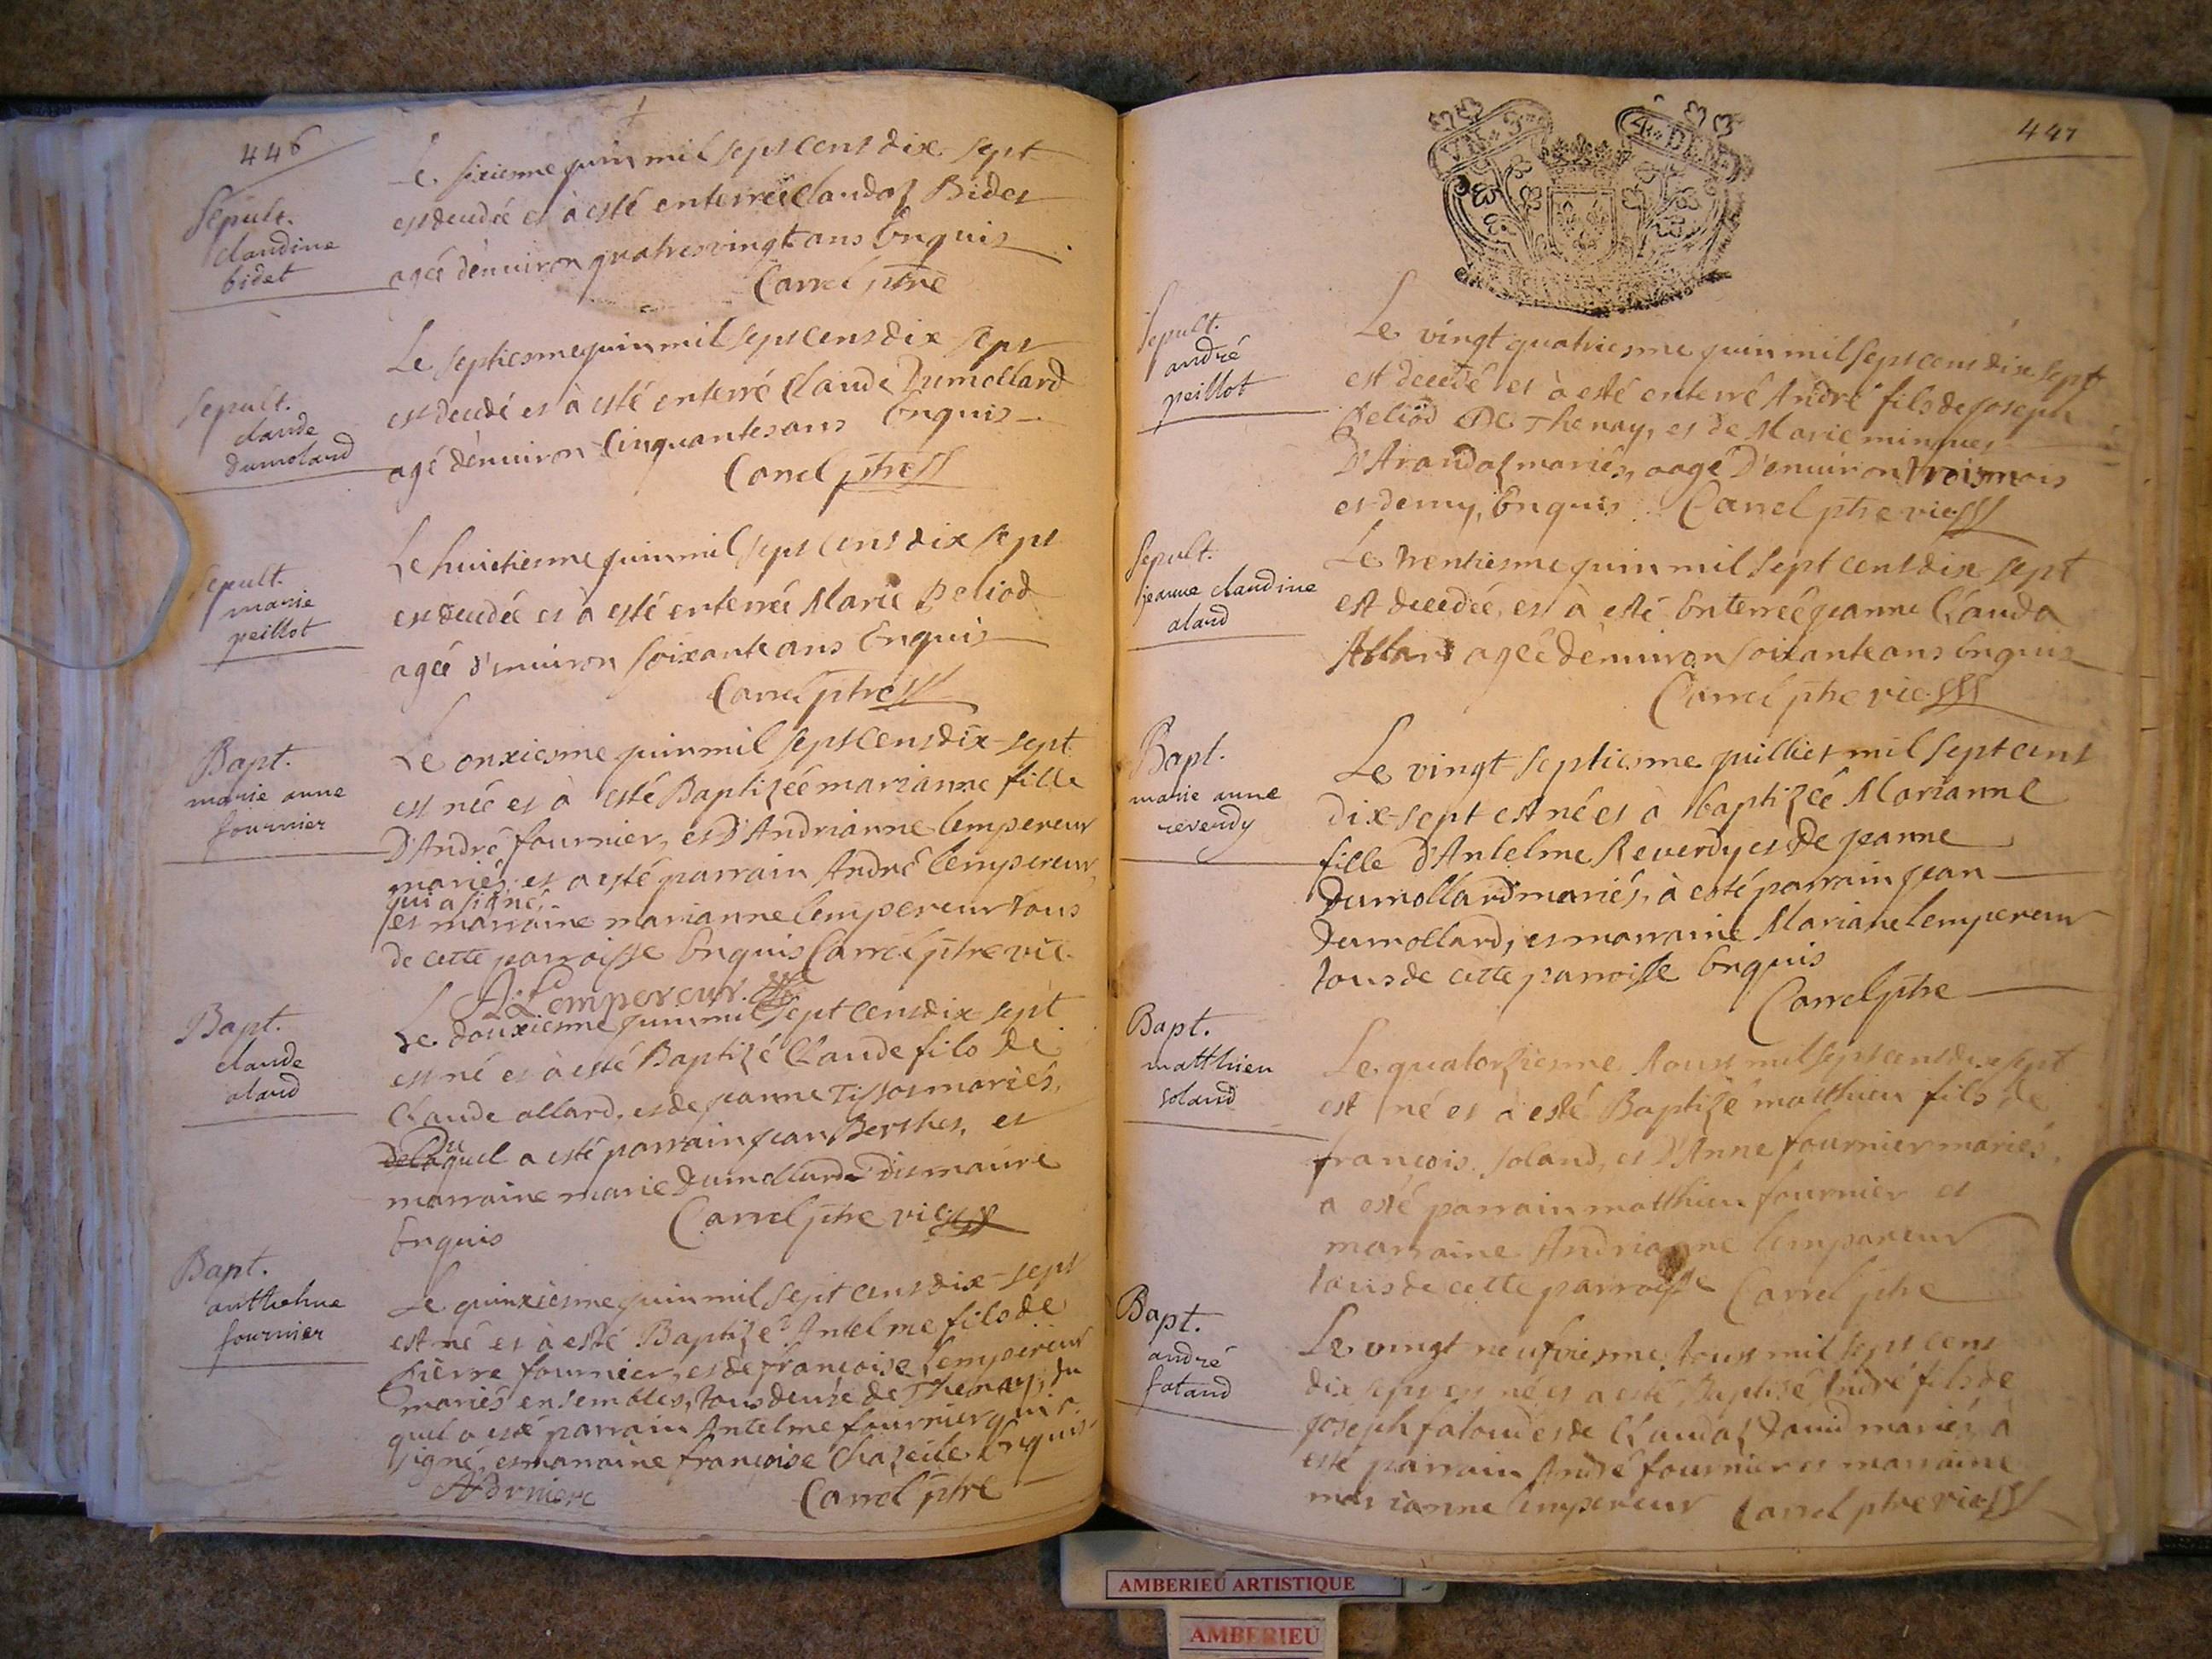 446
Sépult.
claudine
bidet
Le sixiesme juin mil sept cens dix sept
est decedée et à esté enterrée Claudaz Bidet
agée denuiron quatresvingt ans Enquis
Carrel ptre
Sepult.
claude
dumoland
Le septiesme juin mil sept cens dix sept
est decedé et à esté enterré Claude Dumollard
agé denuiron Cinquantes ans Enquis
Carrel ptre
Sepult.
marie
peillot
Le huictiesme juin mil sept cens dix sept
est decedée et à esté enterrée Marie Peliod
agée d'enuiron soixante ans Enquis
Carrel ptre
Bapt.
marie anne
fournier
Le onxiesme juin mil sept cens dix-sept
est née et à esté Baptizée marianne fille
D'André fournier, et D'Andrianne lempereur
mariés, et a esté parrain André lempereur,
qui a signé,
et marraine marianne lempereur tous
de cette parroisse Enquis Carrel ptre vic.
A: Lempereur.
Bapt.
claude
aland
Le douxiesme juin mil sept cens dix sept
est né et à esté Baptizé Claude fils De
Claude allard, et de jeanne Tissot mariés,
Du
delaquel a esté parrain jean Berthet, et
marraine marie Dumollard Dismaure
Enquis Carrel ptre vic
Bapt.
anthelme
fournier
Le quinxiesme juin mil sept cens dix-sept
est né et à esté Baptizé Antelme fils de
Pierre fournier, et de françoise Lempereur
mariés ensembles, tous deuxe de Thenay, du
quel a esté parrain Antelme fournier qui a
signé, et marraine françoise Chazelle Enquis
Carrel ptre
447
4 DEN
Sepult.
andré
peillot
Le vingt quatriesme juin mil sept cens dix sept
est decedé et à esté enterré André fils de joseph
Peliod De Thenay, et de Marie
D'Arandaz mariés, aagé D'enuiron trois mois
et demy, Enquis Carrel ptre vic
Sepult.
jeanne claudine
aland
Le trentiesme juin mil sept cens dix sept
est decedée, et à esté Enterrée jeanne Clauda
Allard agée denuiron soixante ans Enquis
Carrel ptre vic
Bapt.
marie anne
reverdy
Le vingt septiesme juilliet mil sept cens
dix-sept est né et à baptizée Marianne
fille D'Antelme Reverdy et De jeanne
Dumollard mariés, à esté parrain jean
Dumollard, et marraine Mariane lempereur
tous de cette parroisse Enquis
Carrel ptre
Bapt.
matthieu
soland
Le quatorziesme Aoust mil sept cens dix sept
est né et à esté Baptizé matthieu fils de
françois soland, et D'Anne fournier mariés,
a esté parrain matthieu fournier et
marraine Andrianne lempareur
tous de cette parroisse Carrel ptre
Bapt.
andré
faland
Le vingt neufviesme Aoust mil sept cens
dix sept est né et a esté Baptizé André fils de
joseph faloud et de Claudaz David mariés, à
esté parrain André fournier et marraine
marianne lempereur Carrel ptre vic
AMBERIEU ARTISTIQUE
AMBERIEU